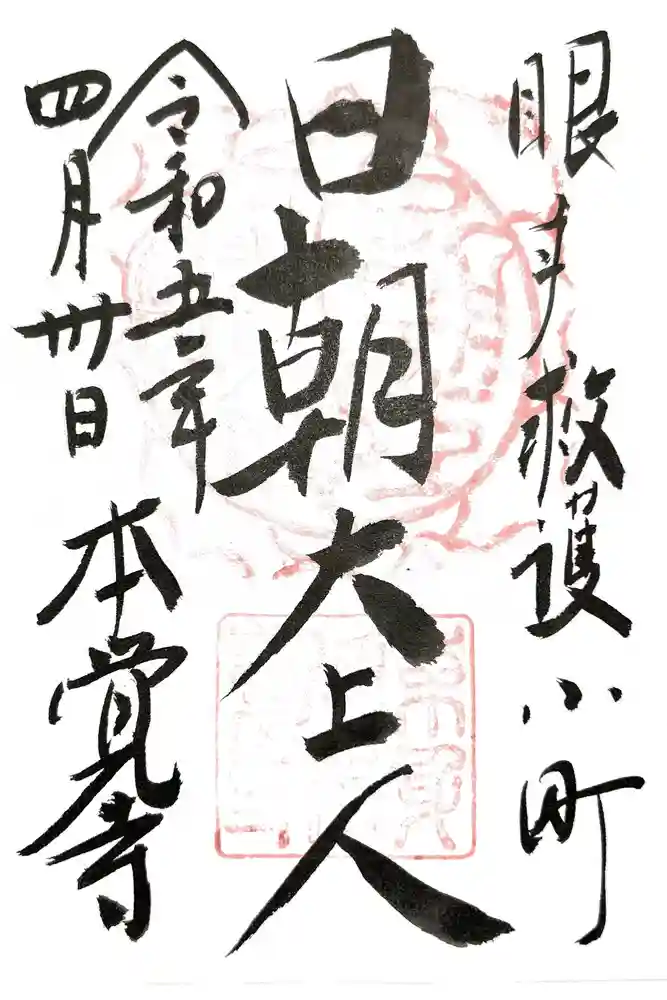 眼救護 小町
日朝大上人
令和五年
四月卅日
本覚寺